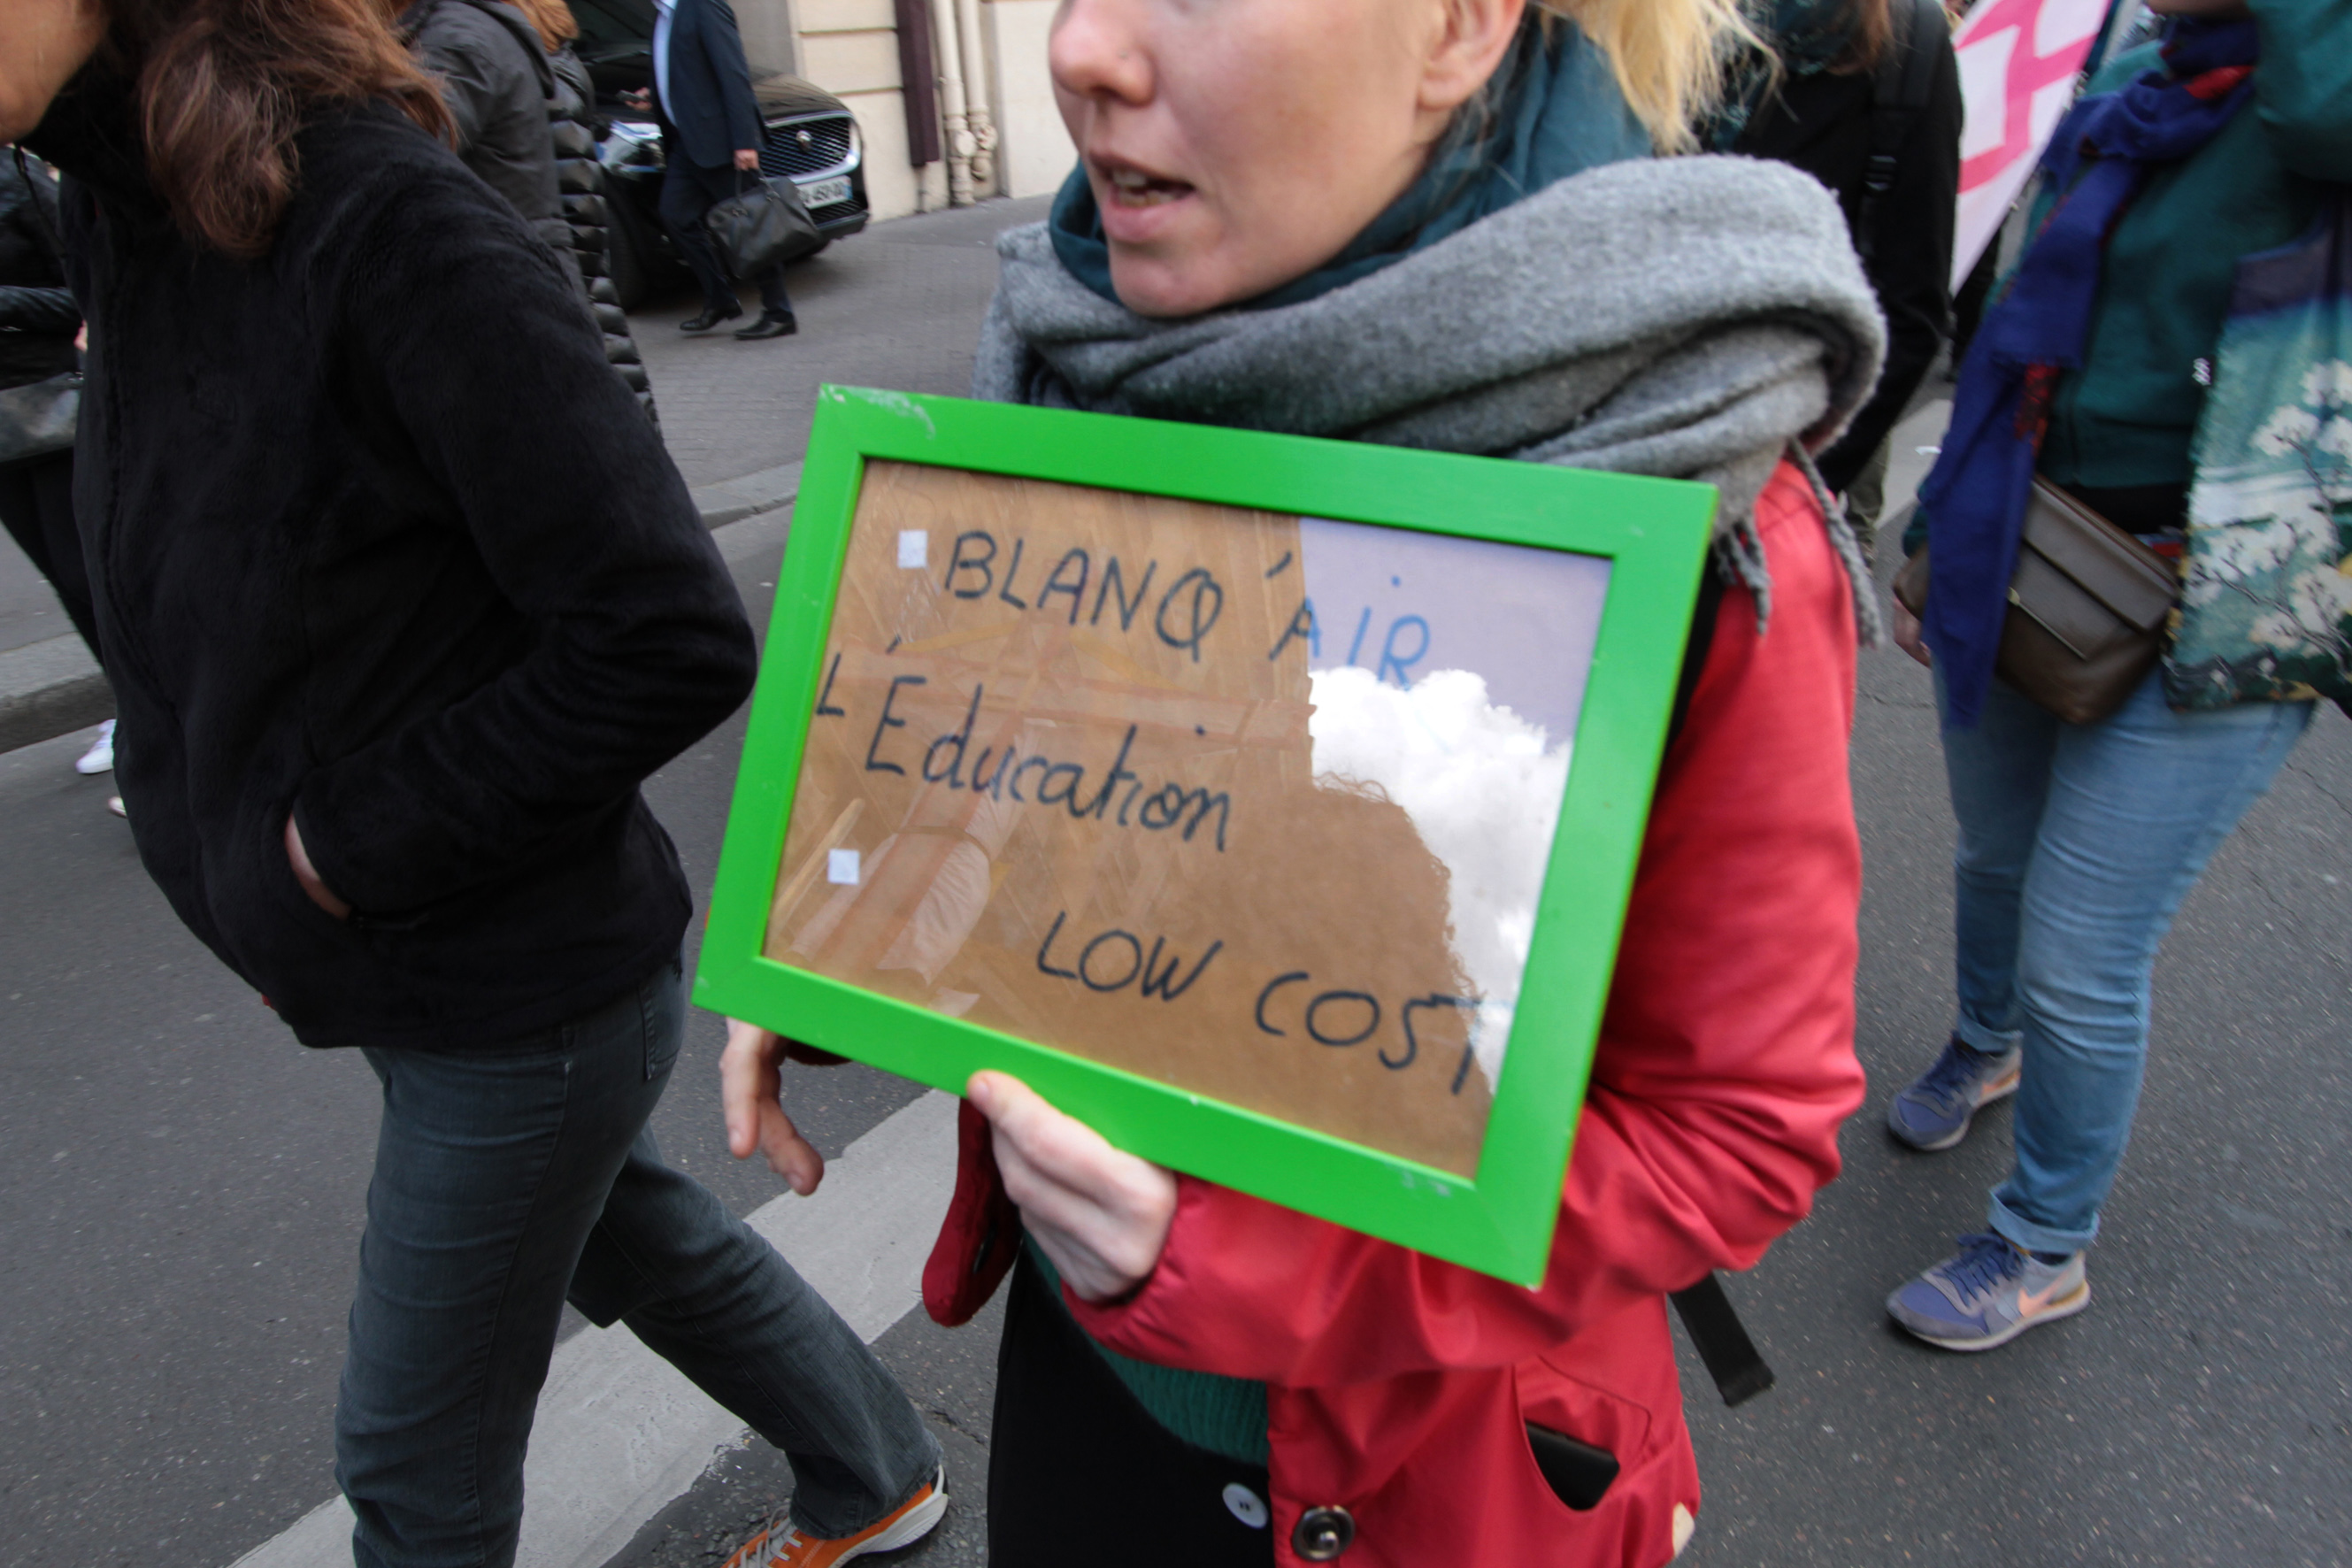 BLANQ'AIR
L'Éducation
LOW COST